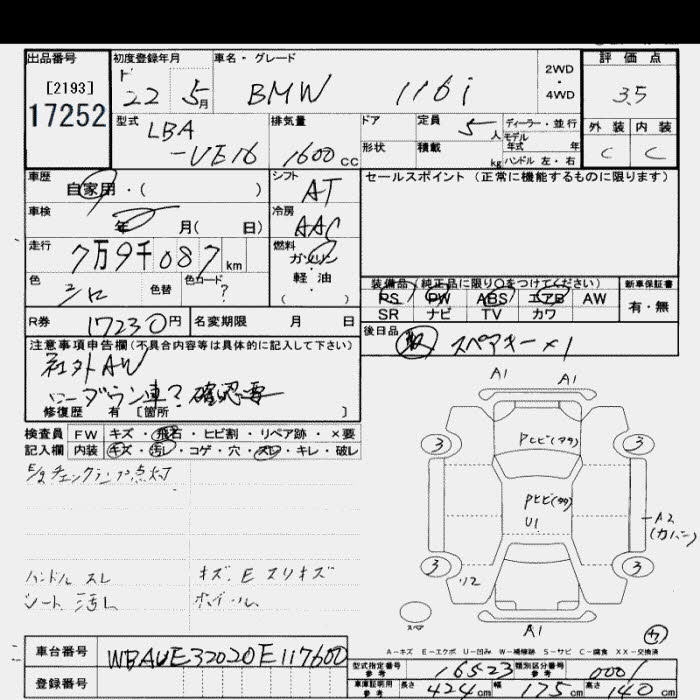 出品番号
[2193]
17252
初度登録年月
22 5月
車名・グレード
BMW 116i
2WD
・
4WD
評価点
3.5
外装 内装
C C
型式
LBA
-UE16
排気量
1600cc
ドア
形状
定員
5人
積載
kg
ディーラー・並行
モデル
年式 年
ハンドル 左・右
車歴
自家用・( )
シフト
AT
セールスポイント (正常に機能するものに限ります)
車検
年 月( 日)
冷房
AAC
走行
7万9千087km
燃料
ガソリン
軽油
( )
色
色替
色カード
?
装備品(純正品に限り○をつけてください)
PS PW ABS エアB AW
SR ナビ TV カワ
新車保証書
有・無
R券
17230円
名変期限 月 日
後日品
取 スペアキー×1
注意事項申告欄(不具合内容等は具体的に記入して下さい)
社外AW
ローダウン車? 確認要
修復歴 有 [箇所 ]
検査員
記入欄
FW キズ・飛石・ヒビ割・リペア跡・×要
内装 キズ・汚レ・コゲ・穴・スレ・キレ・破レ
E/gチェックランプ点灯
ハンドル スレ
シート 汚レ
キズ.E スリキズ
ホイール
A1 A1
3 3
Pヒビ(タタ)
Pヒビ(タタ)
U1
A2
3 3
A1
スペア
A-キズ E-エクボ U-凹み W-補修跡 S-サビ C-腐食 XX-交換済
車台番号
WBAUE32020E117600
登録番号
型式指定番号
参考
16523
類別区分番号
参考
0001
車庫証明用
参考
長さ 424cm 幅 175cm 高さ 140cm